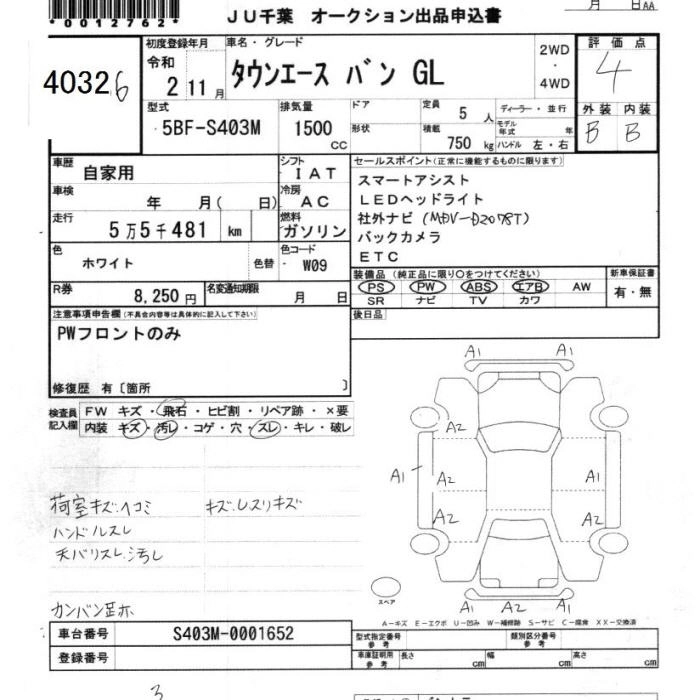 *0012762*
JU千葉 オークション出品申込書
月 日AA
40326
初度登録年月 車名・グレード
令和 2 11月
タウンエース バン GL
2WD
・
4WD
評価点
4
外装 内装
B B
型式 排気量 ドア 定員 ディーラー・並行
5BF-S403M 1500 CC 5人 モデル年式 年
形状 積載 750kg ハンドル 左・右
車歴 自家用
シフト IAT
車検 年 月( 日)
冷房 AC
走行 5万5千481 km
燃料 ガソリン
色 ホワイト 色替
色コード W09
R券 8,250円 名変通知期限 月 日
セールスポイント(正常に機能するものに限ります)
スマートアシスト
LEDヘッドライト
社外ナビ(MDV-D207BT)
バックカメラ
ETC
装備品(純正品に限り○をつけてください) 新車保証書
PS PW ABS エアB AW 有・無
SR ナビ TV カワ
後日品
注意事項申告欄(不具合内容等は具体的に記入して下さい)
PWフロントのみ
修復歴 有〔箇所 〕
検査員記入欄
FW キズ・飛石・ヒビ割・リペア跡・×要
内装 キズ・汚レ・コゲ・穴・スレ・キレ・破レ
荷室キズ.ヘコミ キズ.レスリキズ
ハンドルスレ
天バリスレ.汚レ
カンバン歪ホ
A1 A1
A2
A1 A2 A1
A2 A2
A1 A2 A1
スペア
A-キズ E-エクボ U-凹み W-補修跡 S-サビ C-腐食 XX-交換済
車台番号 S403M-0001652
登録番号
型式指定番号 参考 類別区分番号 参考
車庫証明用 参考 長さ cm 幅 cm 高さ cm
3